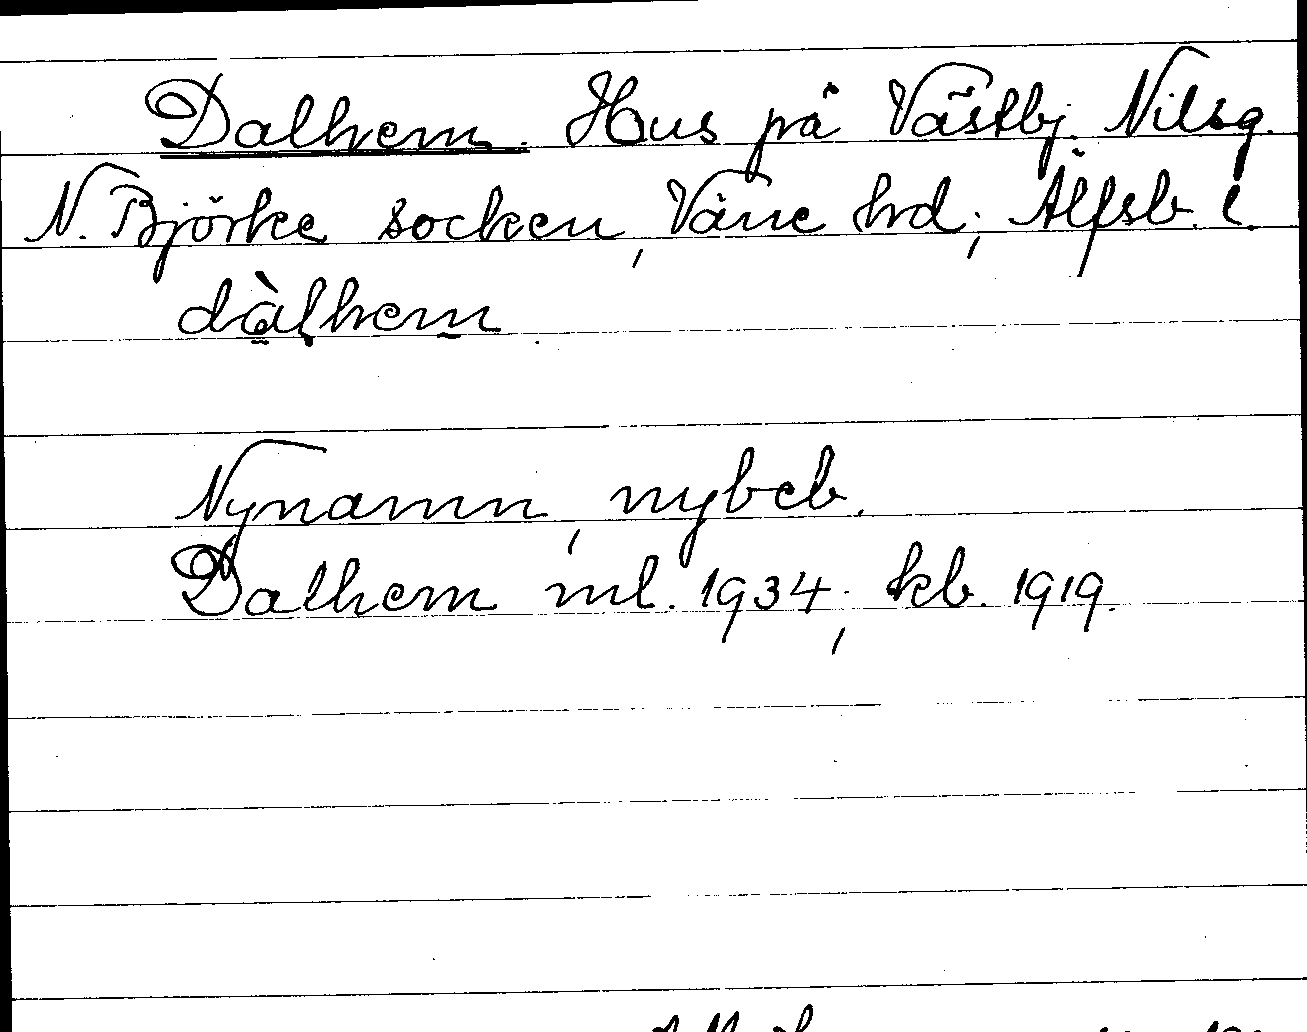 Dalhem. Hus på Västbj. Nilsg.
N. Björke socken, Väne hd; Älfsb. l.
dàlhem
Nynamn, nybeb.
Dalhem ml. 1934; kb. 1919.